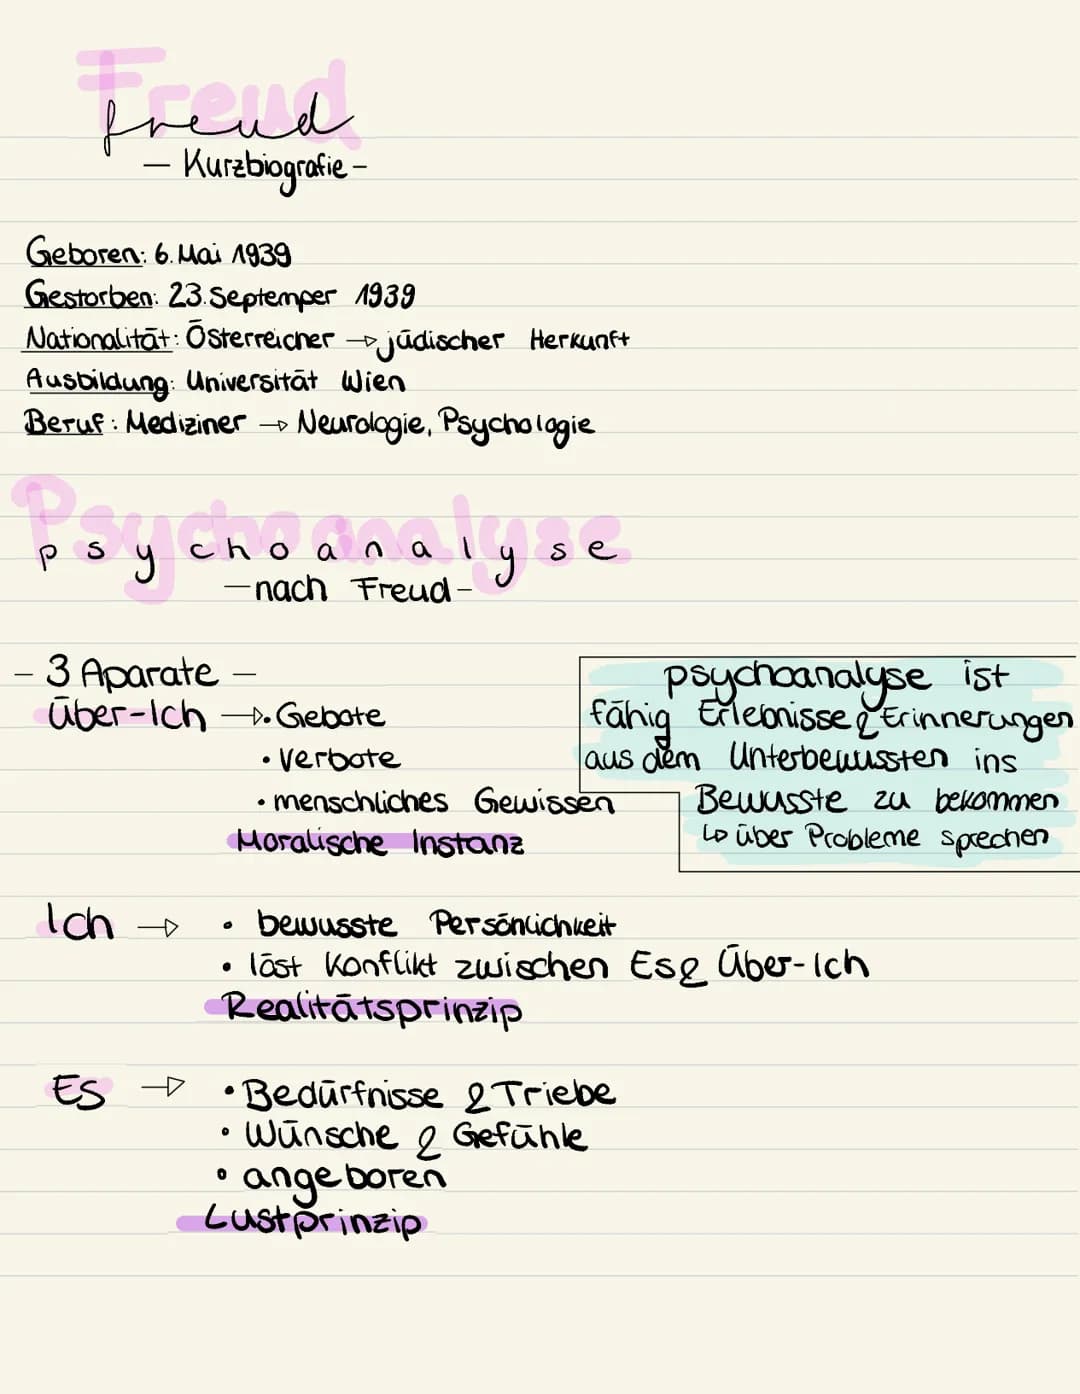 Freud
freud
- Kurzbiografie -
Geboren: 6. Mai 1939
Gestorben: 23. Septemper 1939
Nationalität: Österreicher → jüdischer Herkunft
Ausbildung: Universität Wien
Beruf: Mediziner → Neurologie, Psychologie
Psychoanalyse
psychoanalyse
- nach Freud -
- 3 Aparate -
Über-Ich → • Gebote
• Verbote
• menschliches Gewissen
Moralische Instanz
psychoanalyse ist
fähig Erlebnisse & Erinnerungen
aus dem Unterbewussten ins
Bewusste zu bekommen
↳ über Probleme sprechen
Ich → • bewusste Persönlichkeit
• löst Konflikt zwischen Es & Über-Ich
Realitätsprinzip
ES → • Bedürfnisse & Triebe
• Wünsche & Gefühle
• angeboren
Lustprinzip